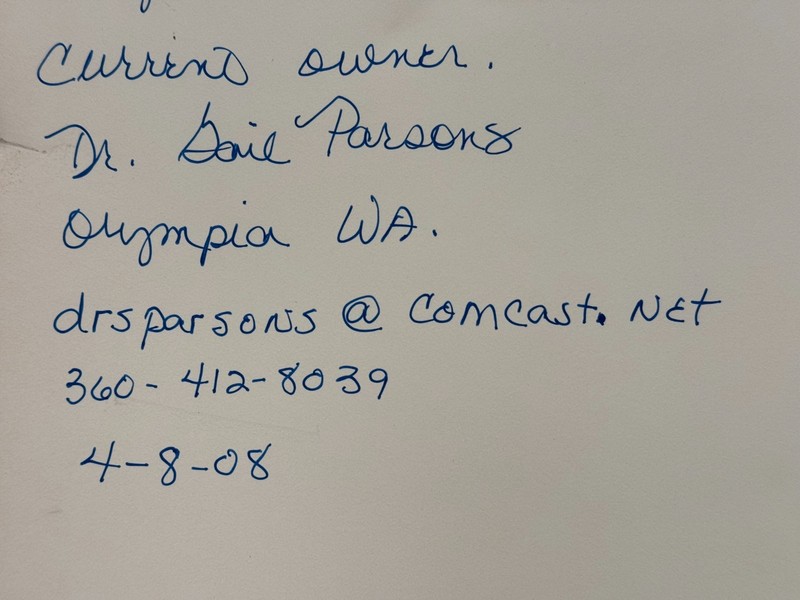 Current owner.
Dr. Gail Parsons
Olympia WA.
drsparsons @ comcast. NEt
360-412-8039
4-8-08